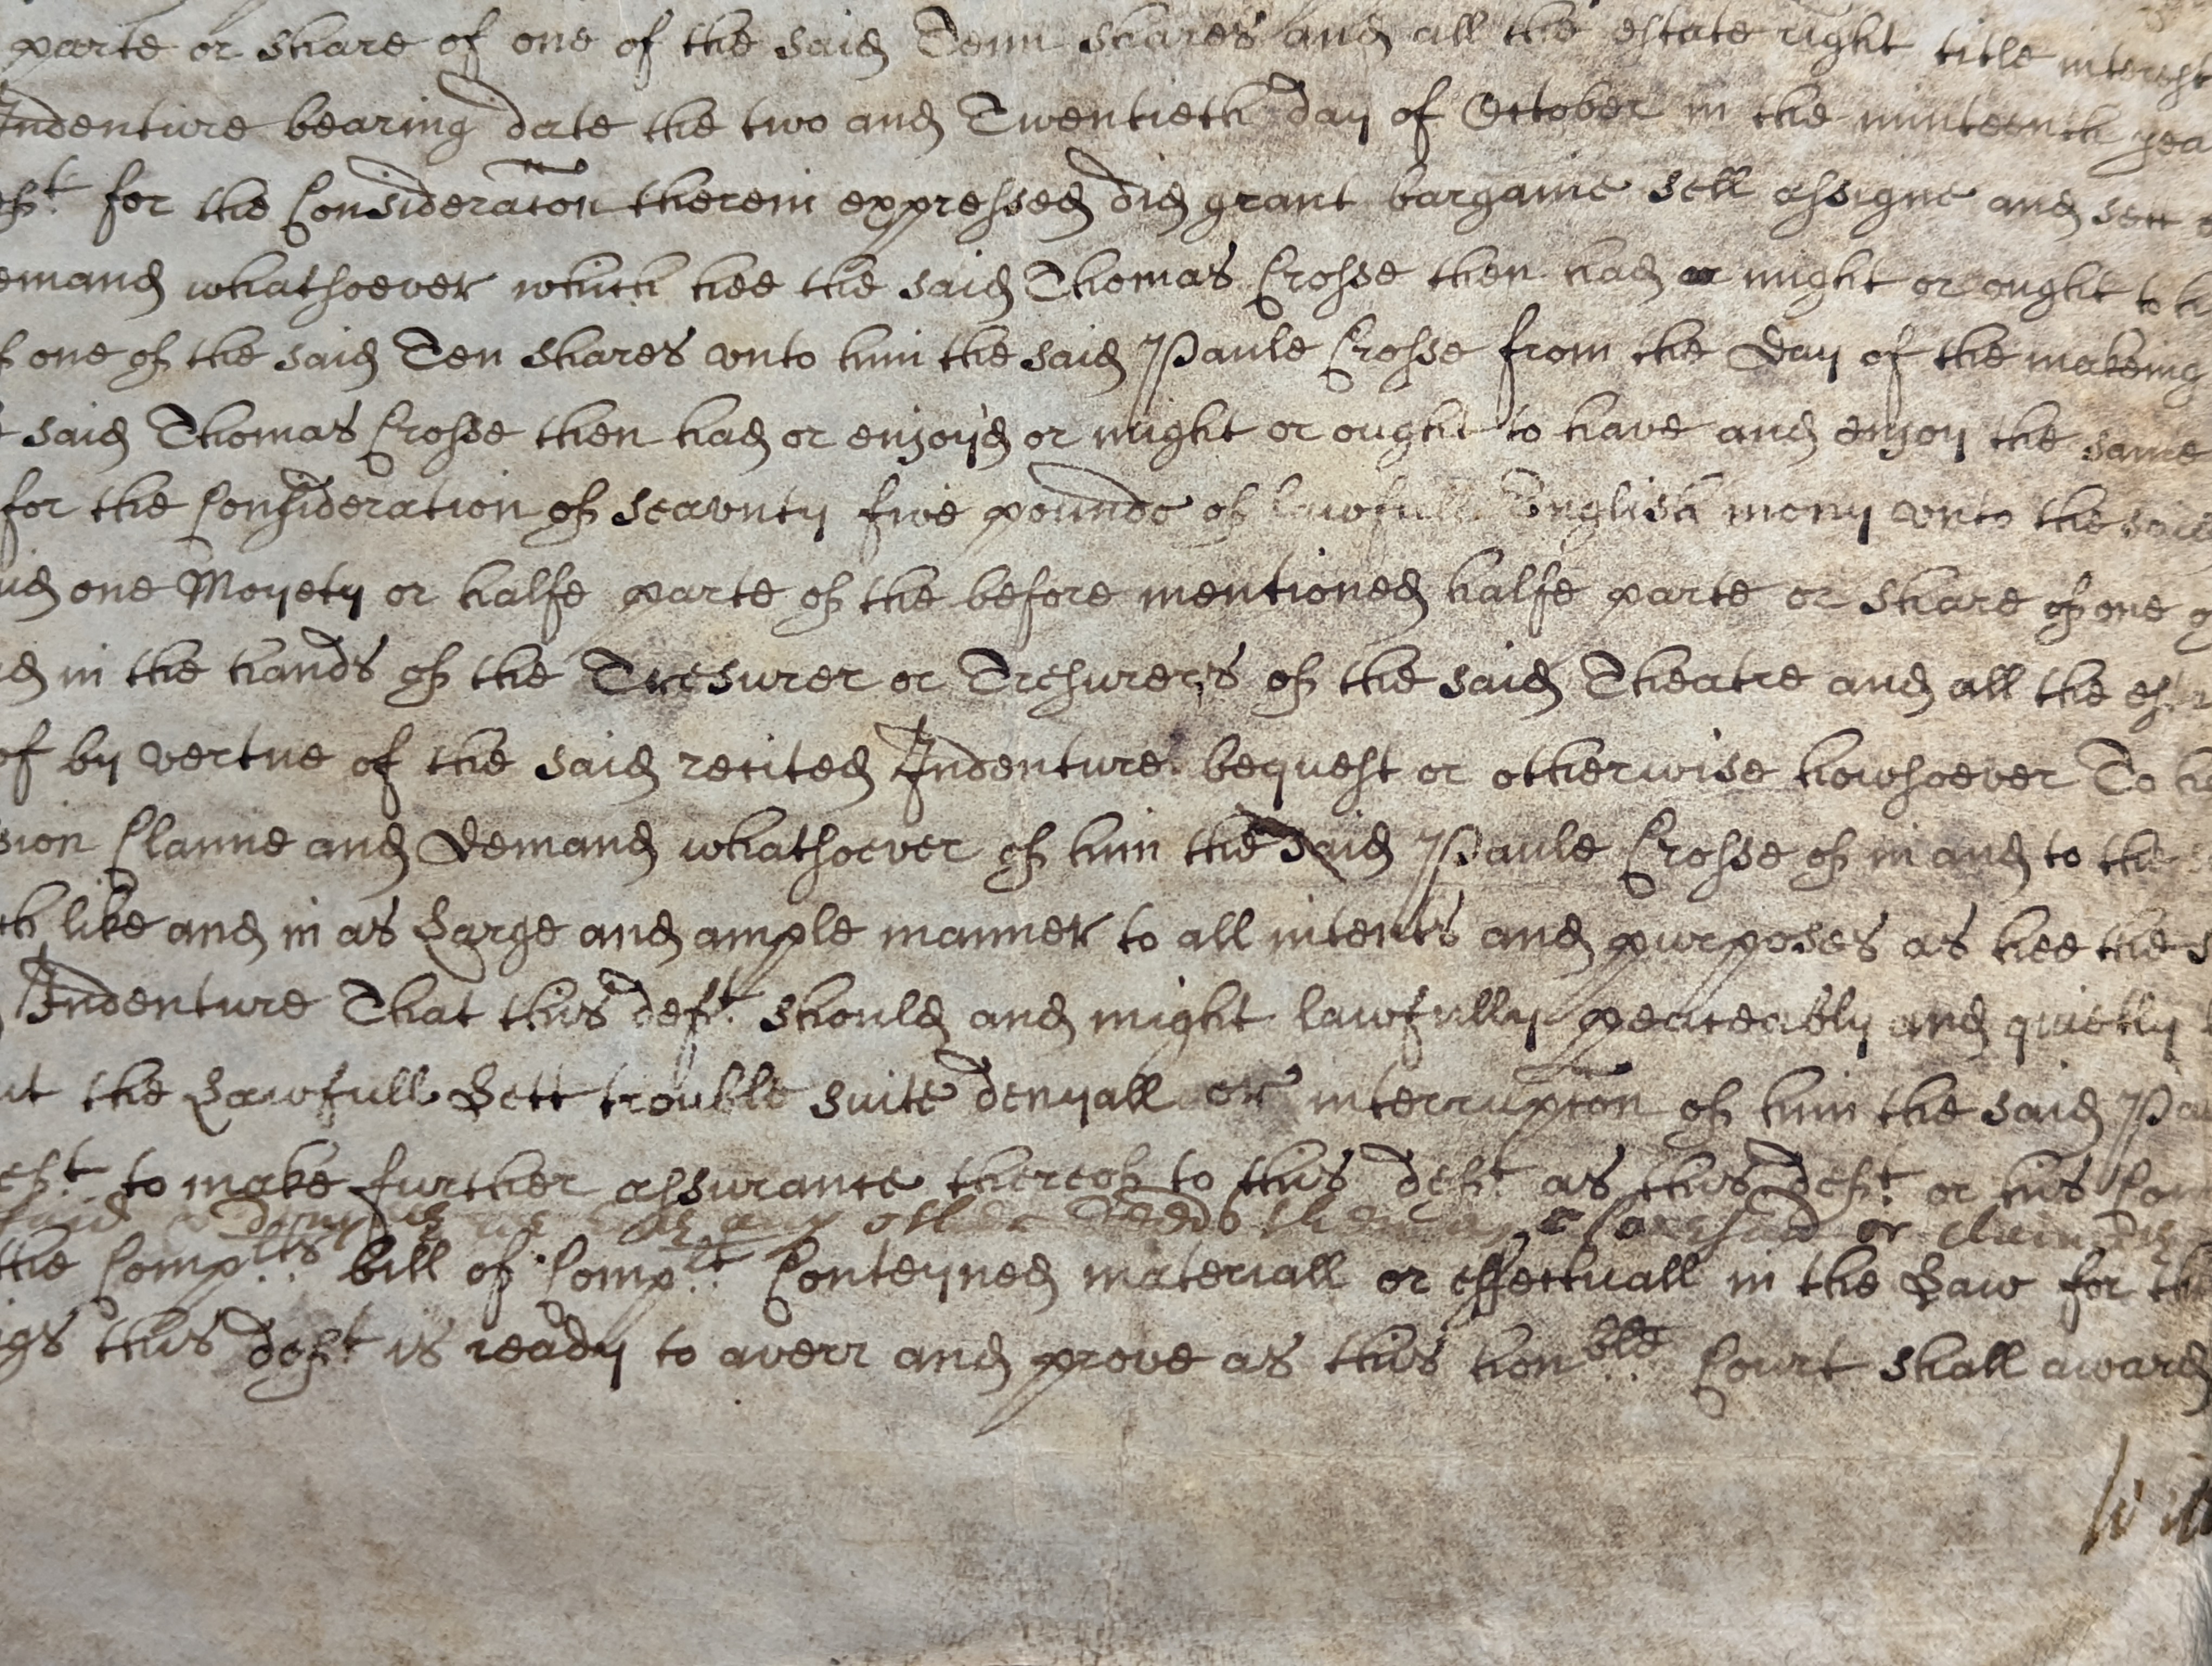 parte or share of one of the said Tenn shares and all the estate right title interest
Indenture bearing date the two and Twentieth day of October in the ninteenth yea
for the Consideracon therein expressed did grant bargaine sell assigne and sett
emand whatsoever which hee the said Thomas Crosse then had or might or ought to h
one of the said Ten shares vnto him the said Paule Crosse from the Day of the makeing
said Thomas Crosse then had or enjoyd or might or ought to have and enjoy the same
for the Consideration of seaventy five pounds of lawfull English mony vnto the said
one Moyety or halfe parte of the before mentioned halfe parte or share of one
in the hands of the Tresurer or Tresurers of the said Theatre and all the est
of by vertue of the said recited Indenture bequest or otherwise howsoever To h
sion Clayme and Demand whatsoever of him the said Paule Crosse of in and to the
like and in as Large and ample manner to all intents and purposes as hee the s
Indenture That this deft. should and might lawfully peaceably and quietly
ut the Lawfull Lett trouble suite denyall or interrupcon of him the said Pau
to make further assurance thereof to this deft. as this deft. or his Coun
any other Deeds or
the Complts. bill of Complt. Conteyned materiall or effectuall in the Law for th
gs this deft is ready to averr and prove as this honble. Court shall award